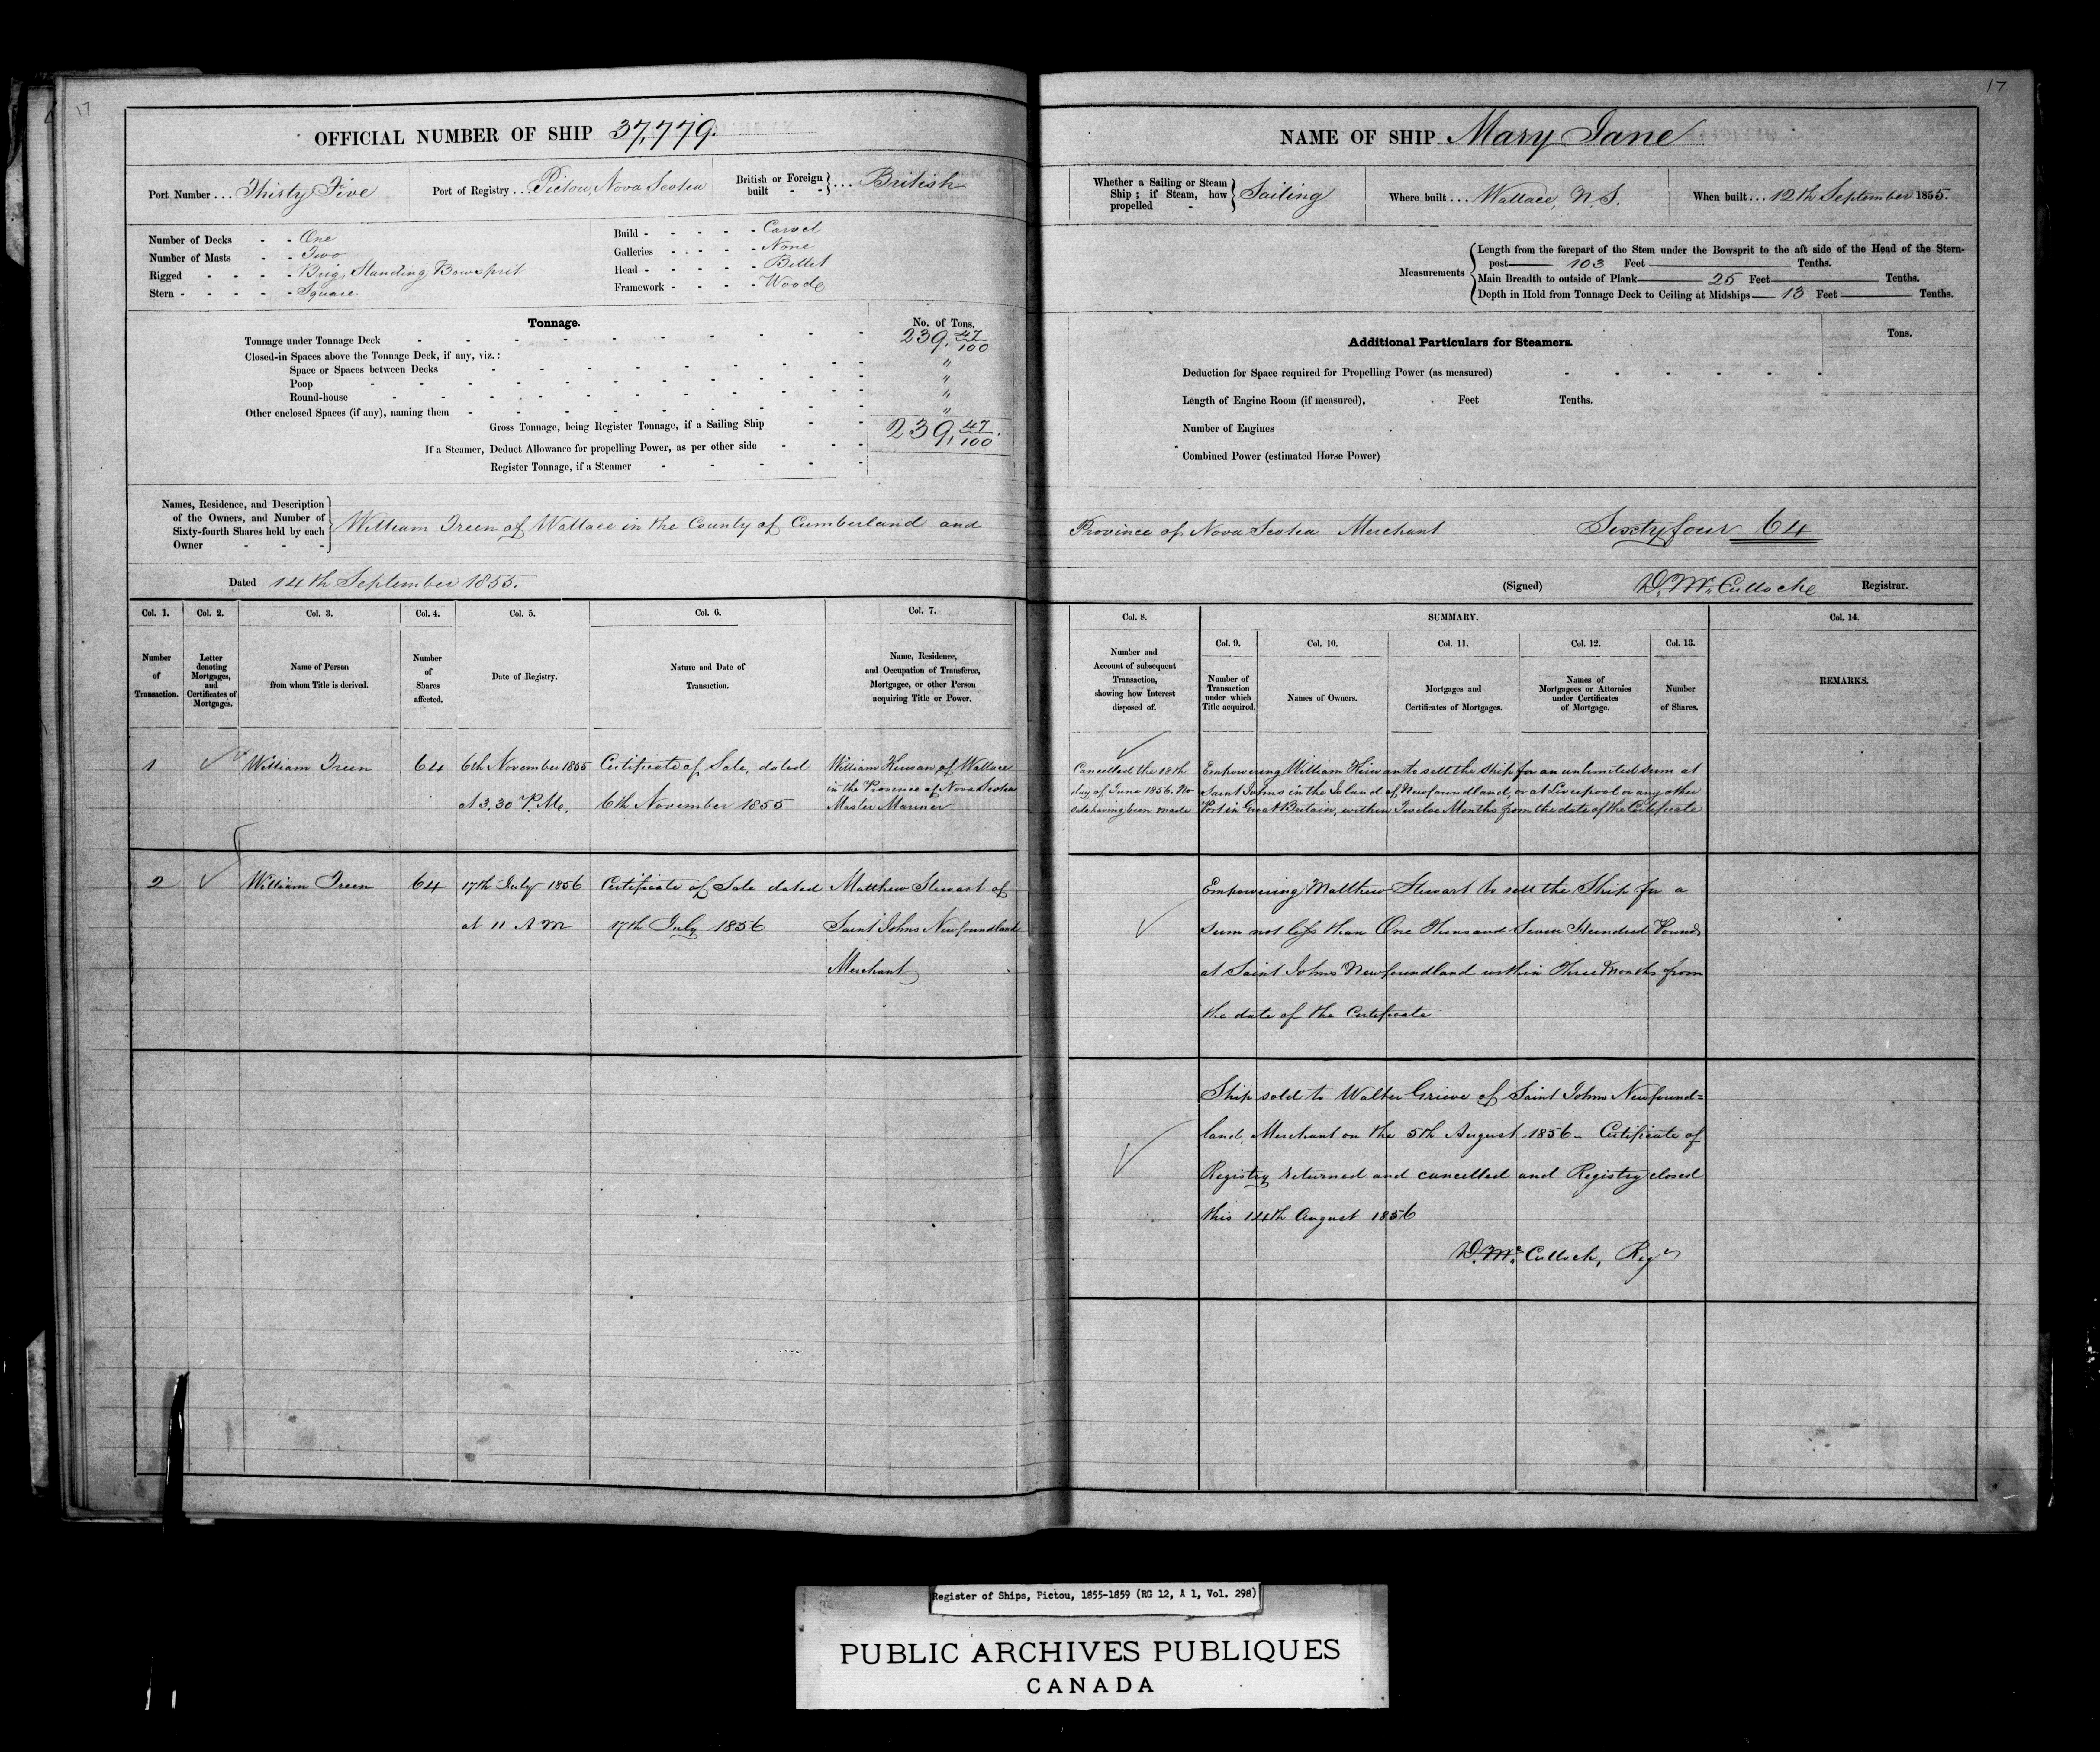 17
OFFICIAL NUMBER OF SHIP 37,779.
Port Number ... Thirty Five
Port of Registry ... Pictou, Nova Scotia
British or Foreign built - - } ... British
Number of Decks - - One
Number of Masts - - Two
Rigged - - - - Brig, Standing Bowsprit
Stern - - - - - Square.
Build - - - - - Carvel
Galleries - - - - None
Head - - - - - Billet
Framework - - - - Wood
Tonnage.
No. of Tons.
Tonnage under Tonnage Deck 239, 47/100
Closed-in Spaces above the Tonnage Deck, if any, viz.: "
Space or Spaces between Decks "
Poop "
Round-house "
Other enclosed Spaces (if any), naming them
Gross Tonnage, being Register Tonnage, if a Sailing Ship 239, 47/100
If a Steamer, Deduct Allowance for propelling Power, as per other side
Register Tonnage, if a Steamer
Names, Residence, and Description
of the Owners, and Number of
Sixty-fourth Shares held by each
Owner - - -
William Treen of Wallace in the County of Cumberland and
Dated 14th September 1855.
Col. 1. Col. 2. Col. 3. Col. 4. Col. 5. Col. 6. Col. 7.
Number of Transaction.
Letter denoting Mortgages, and Certificates of Mortgages.
Name of Person from whom Title is derived.
Number of Shares affected.
Date of Registry.
Nature and Date of Transaction.
Name, Residence, and Occupation of Transferee, Mortgagee, or other Person acquiring Title or Power.
1 William Treen 64 6th November 1855 Certificate of Sale, dated William Kirwan of Wallace
in the Province of Nova Scotia
at 3.30 P.M. 6th November 1855 Master Mariner
2 William Treen 64 17th July 1856 Certificate of Sale dated Matthew Stewart of
at 11 A M 17th July 1856 Saint Johns Newfoundland
Merchant
17
NAME OF SHIP Mary Jane
Whether a Sailing or Steam Ship; if Steam, how propelled - } Sailing
Where built ... Wallace, N.S.
When built ... 12th September 1855.
Measurements
Length from the forepart of the Stem under the Bowsprit to the aft side of the Head of the Stern-
post 103 Feet Tenths.
Main Breadth to outside of Plank 25 Feet Tenths.
Depth in Hold from Tonnage Deck to Ceiling at Midships 13 Feet Tenths.
Additional Particulars for Steamers.
Tons.
Deduction for Space required for Propelling Power (as measured)
Length of Engine Room (if measured), Feet Tenths.
Number of Engines
Combined Power (estimated Horse Power)
Province of Nova Scotia Merchant Sixty four 64
(Signed) D. McCulloch Registrar.
Col. 8. SUMMARY. Col. 14.
Col. 9. Col. 10. Col. 11. Col. 12. Col. 13.
Number and Account of subsequent Transaction, showing how Interest disposed of.
Number of Transaction under which Title acquired.
Names of Owners.
Mortgages and Certificates of Mortgages.
Names of Mortgagees or Attornies under Certificates of Mortgage.
Number of Shares.
REMARKS.
Cancelled the 18th
day of June 1856. No
sale having been made
Empowering William Kirwan to sell the ship for an unlimited sum at
Saint Johns in the Island of Newfoundland, or at Liverpool or any other
Port in Great Britain, within Twelve Months from the date of the Certificate
Empowering Matthew Stewart to sell the Ship for a
sum not less than One Thousand Seven Hundred Pounds
at Saint Johns Newfoundland within Three Months from
the date of the Certificate
Ship sold to Walter Grieve of Saint Johns Newfound=
land, Merchant on the 5th August 1856 - Certificate of
Registry returned and cancelled and Registry closed
this 14th August 1856
D. McCulloch, Regr
Register of Ships, Pictou, 1855-1859 (RG 12, A 1, Vol. 298)
PUBLIC ARCHIVES PUBLIQUES
CANADA